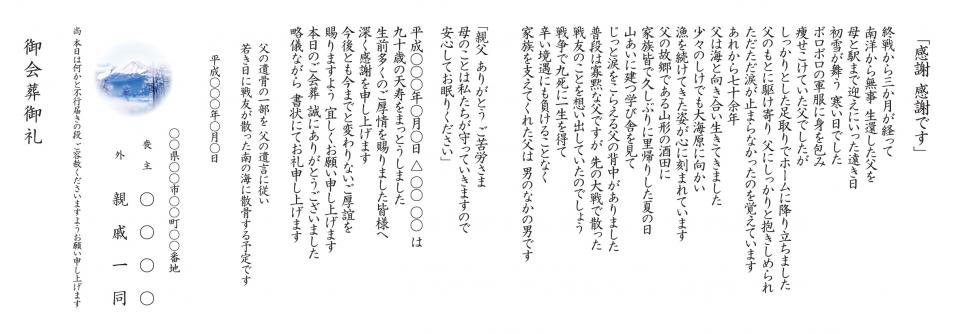 「感謝 感謝です」
終戦から三か月が経って
南洋から無事 生還した父を
母と駅まで迎えにいった遠き日
初雪が舞う 寒い日でした
ボロボロの軍服に身を包み
痩せこけていた父でしたが
しっかりとした足取りでホームに降り立ちました
父のもとに駆け寄り 父にしっかりと抱きしめられ
ただただ涙が止まらなかったのを覚えています
あれから七十余年
父は海と向き合い生きてきました
少々のしけでも大海原に向かい
漁を続けてきた姿が心に刻まれています
父の故郷である山形の酒田に
家族皆で久しぶりに里帰りした夏の日
山あいに建つ学び舎を見て
じっと涙をこらえる父の背中がありました
普段は寡黙な父ですが 先の大戦で散った
戦友のことを想い出していたのでしょう
戦争で九死に一生を得て
辛い境遇にも負けることなく
家族を支えてくれた父は 男のなかの男です
「親父 ありがとう ご苦労さま
母のことは私たちが守っていきますので
安心してお眠りください」
平成〇〇〇年〇月〇日 △〇〇 〇〇 は
九十歳の天寿をまっとうしました
生前多くのご厚情を賜りました皆様へ
深く感謝を申し上げます
今後とも今までと変わりないご厚誼を
賜りますよう 宜しくお願い申し上げます
本日のご会葬 誠にありがとうございました
略儀ながら 書状にてお礼申し上げます
父の遺骨の一部を 父の遺言に従い
若き日に戦友が散った南の海に散骨する予定です
平成〇〇〇年〇月〇日
〇〇県〇〇市〇〇町〇〇番地
喪主 〇〇〇〇
外 親戚一同
尚 本日は何かと不行届きの段 ご容赦くださいますようお願い申し上げます
御会葬御礼